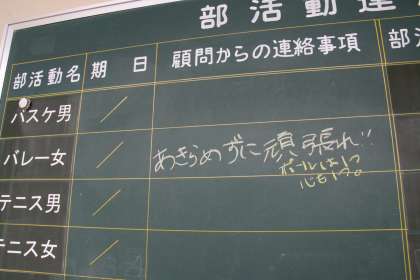 部活動連
部活動名 期 日 顧問からの連絡事項 部
バスケ男 /
バレー女 / あきらめずに頑張れ!!
ボールは1つ
心も1つ。
テニス男 /
テニス女 /